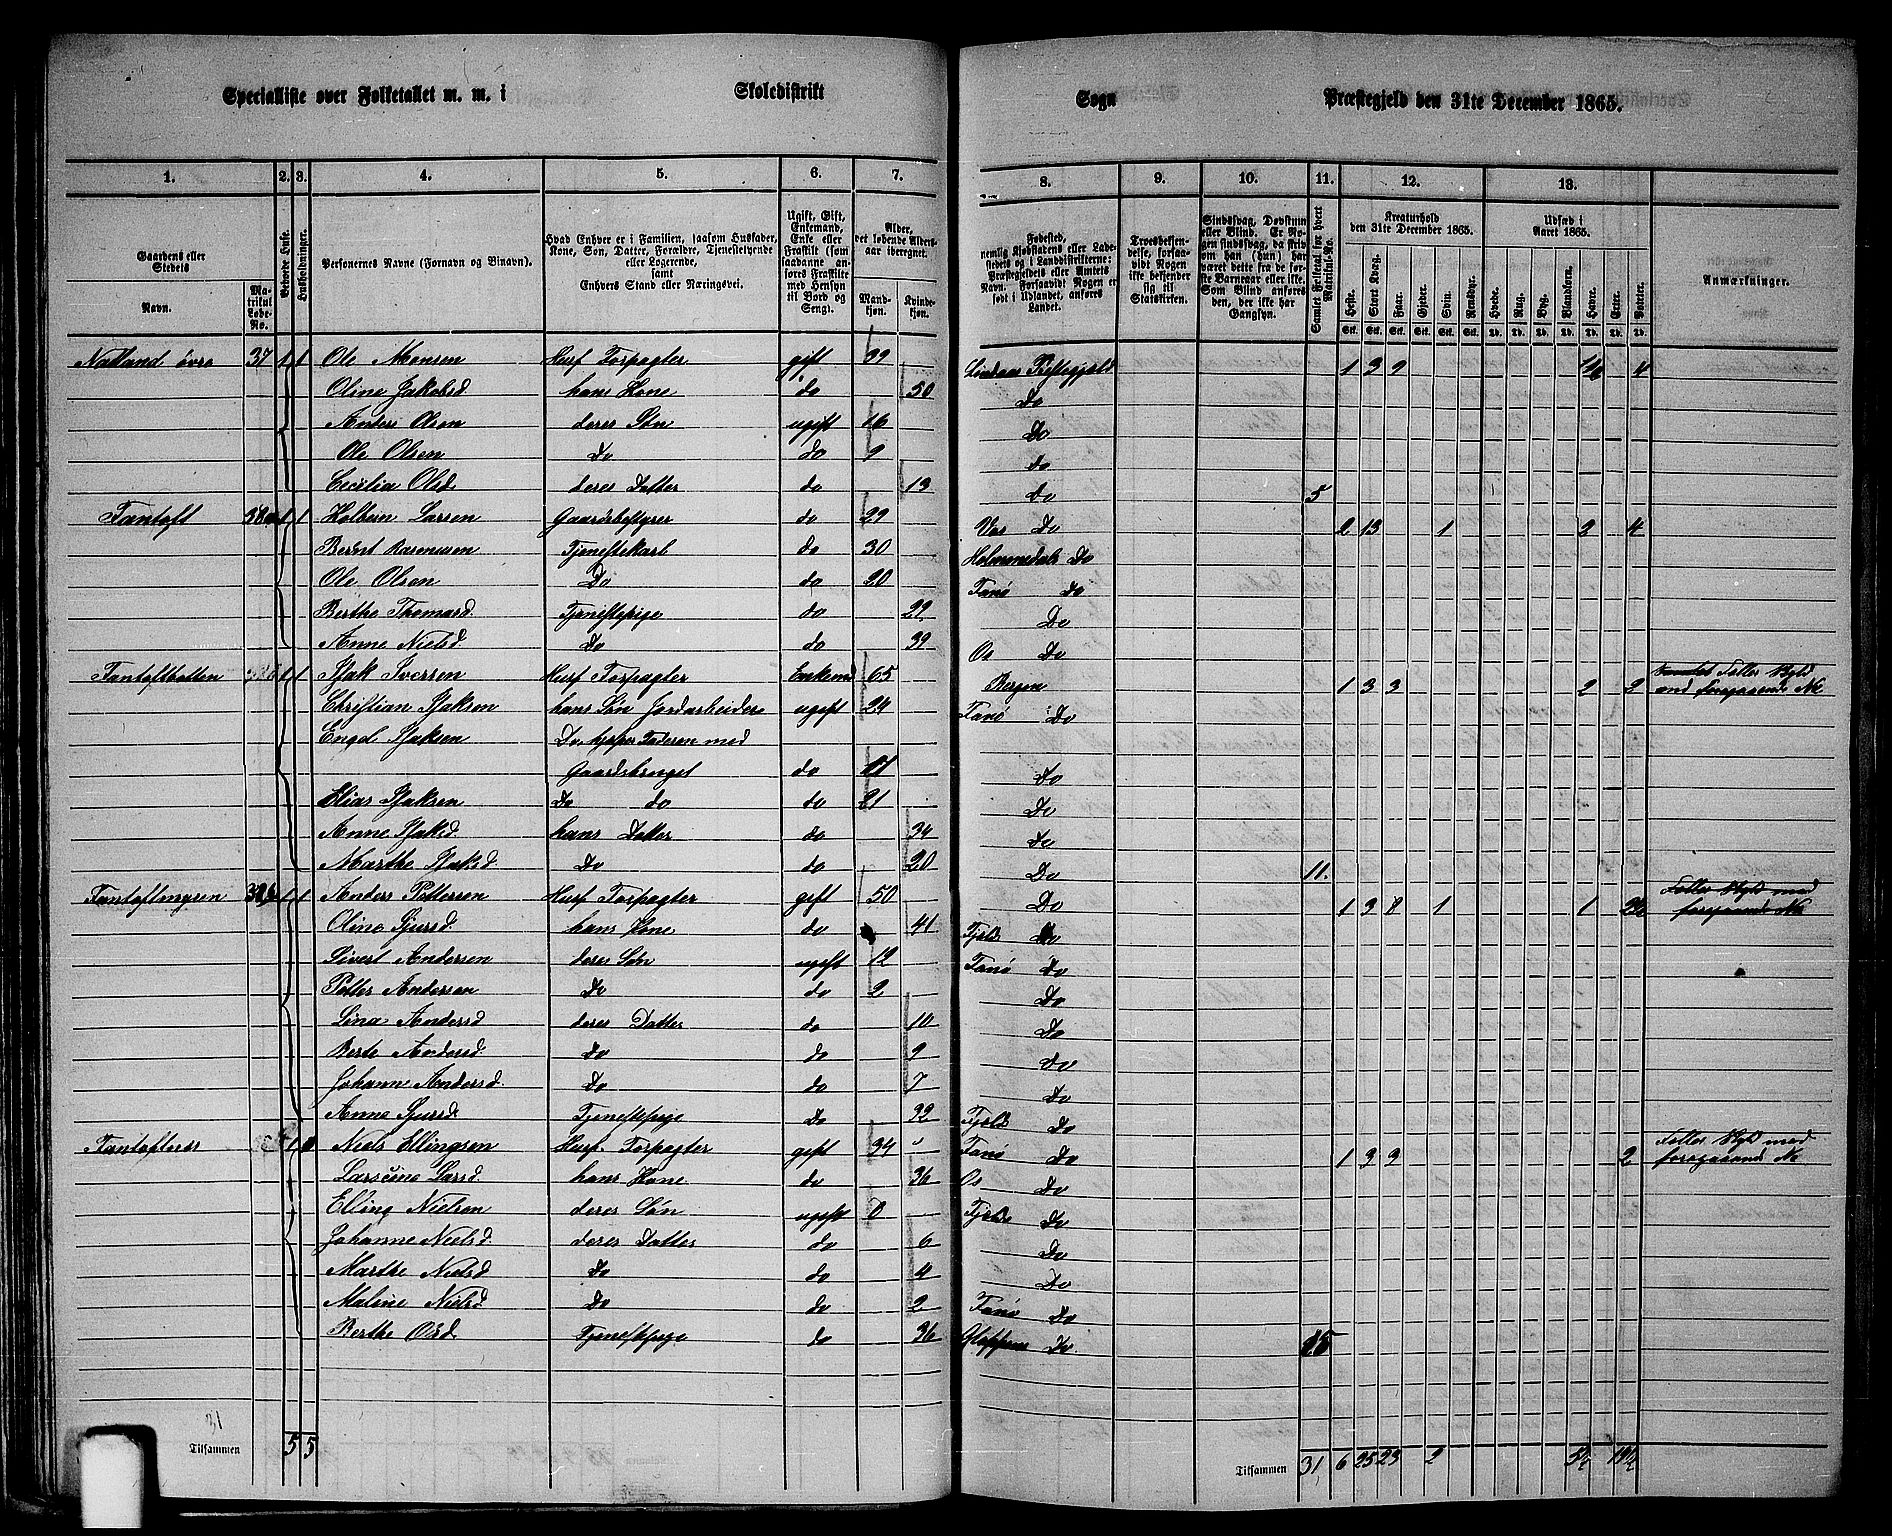 Specialliste over Folketallet m. m. i Skoledistrikt Sogn Præstegjeld den 31te December 1865.
1. 2. 3. 4. 5. 6. 7. 8. 9. 10. 11. 12. 13.
Gaardens eller Stedets
Navn.
Matrikul Løbe-No.
Beboede Huse.
Husholdninger.
Personernes Navne (Fornavn og Binavn).
Hvad Enhver er i Familien, saasom Husfader, Kone, Søn, Datter, Forældre, Tjenestetyende eller Logerende,
samt
Enhvers Stand eller Næringsvei.
Ugift, Gift, Enkemand, Enke eller Fraskilt (som saadanne anføres Fraskilte med Hensyn til Bord og Seng).
Alder, det løbende Aldersaar iberegnet.
Mandkjøn.
Kvindekjøn.
Fødested, nemlig Kjøbstadens eller Ladestedets og i Landdistrikterne: Præstegjeldets eller Amtets Navn. Forsaavidt Nogen er født i Udlandet, anføres Landet.
Troesbekjendelse, forsaavidt Nogen ikke bekjender sig til Statskirken.
Sindssvag, Døvstum eller Blind. Er Nogen sindssvag, da skrives om han (hun) har været dette fra de første Barneaar eller ikke. Som Blind anføres den, der ikke har Gangsyn.
Samlet Folketal for hvert Matrikul-No.
Kreaturhold den 31te December 1865.
Heste. Stort Kvæg. Faar. Gjeder. Svin. Rensdyr.
Udsæd i Aaret 1865.
Hvede. Rug. Byg. Blandkorn. Havre. Erter. Poteter.
Anmærkninger.
Natland øvre 37 1 1 Ole Monsen Husf Forpagter gift 39 Lindaas Præstegjeld 1 3 9 4
Oline Jakobsd hans Kone do 50 Do
Anders Olsen deres Søn ugift 16 Do
Ole Olsen Do do 9 do
Cecilia Olsd deres Datter do 13 Do 5
Fantoft 1 1 Larsen Gaardsbestyrer do 29 Vos Do 2 13 1 2 4
Berent Rasmussen Tjenestekarl do 30 Do
Ole Olsen Do do 20 Fanø Do
Berthe Thomasd. Tjenestepige do 22 Do
Anne Nielsd Do do 39 Os Do
Fantoftbotten 1 1 Isak Iversen Husf Forpagter Enkemd 65 Bergen 1 3 3 2 2
Christian Isaksen hans Søn Jordarbeider ugift 24 Fanø Do
Engel Isaksen Do. hjelper Faderen med
Gaardsbruget do Do
Elias Isaksen Do do do 21 Do
Anne Isaksd. hans Datter do 34 Do
Marthe Isaksd. Do do 20 Do 11.
Fantoftmyren 1 1 Anders Pettersen Husf Forpagter gift 50 Do 1 3 8 1 1
Fælles Skyld med
foregaaende No
Oline Sjursd hans Kone do 41 Fjeld Do
Sivert Andersen deres Søn ugift 12 Fanø Do
Petter Andersen Do do 2 Do
Lina Andersd deres Datter do 10 Do
Berte Andersd Do do 9 Do
Johanne Andersd. Do do 7 Do
Anna Sjursd. Tjenestepige Do 32 Fjeld Do
Niels Ellingsen Husf. Forpagter gift 34 Fanø Do 1 3 3 2
Fælles Skyld med
foregaaende No
Larsine Larsd. hans Kone do 36 Os Do
Elling Nielsen deres Søn ugift 0 Fjeld Do
Johanne Nielsd. deres Datter do 6 Do
Marthe Nielsd Do do 4 Do
Malene Nielsd Do do 2 Fanø Do
Berthe Tjenestepige do 36 Gloppen Do 15
31
Tilsammen 5 5 Tilsammen 31 6 25 23 2